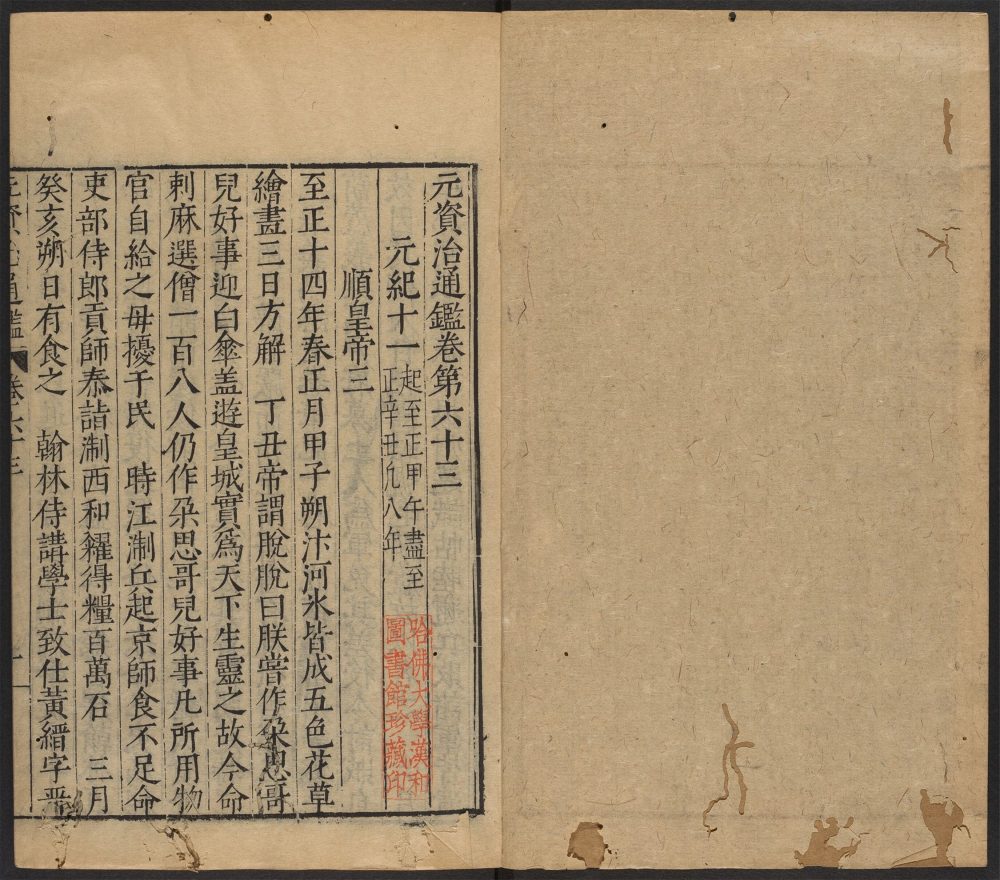 元資治通鑑卷第六十三
元紀十一 起至正甲午盡至
正辛丑凡八年
順皇帝三
至正十四年春正月甲子朔汴河氷皆成五色花草
繪畫三日方解 丁丑帝謂脫脫曰朕嘗作朶思哥
兒好事迎白傘盖遊皇城實爲天下生靈之故今命
剌麻選僧一百八人仍作朶思哥兒好事凡所用物
官自給之毋擾于民 時江淛兵起京師食不足命
吏部侍郎貢師泰詣淛西和糴得糧百萬石 三月
癸亥朔日有食之 翰林侍講學士致仕黃縉字晋
元資治通鑑 卷六十三 一
哈佛大學漢和
圖書館珍藏印